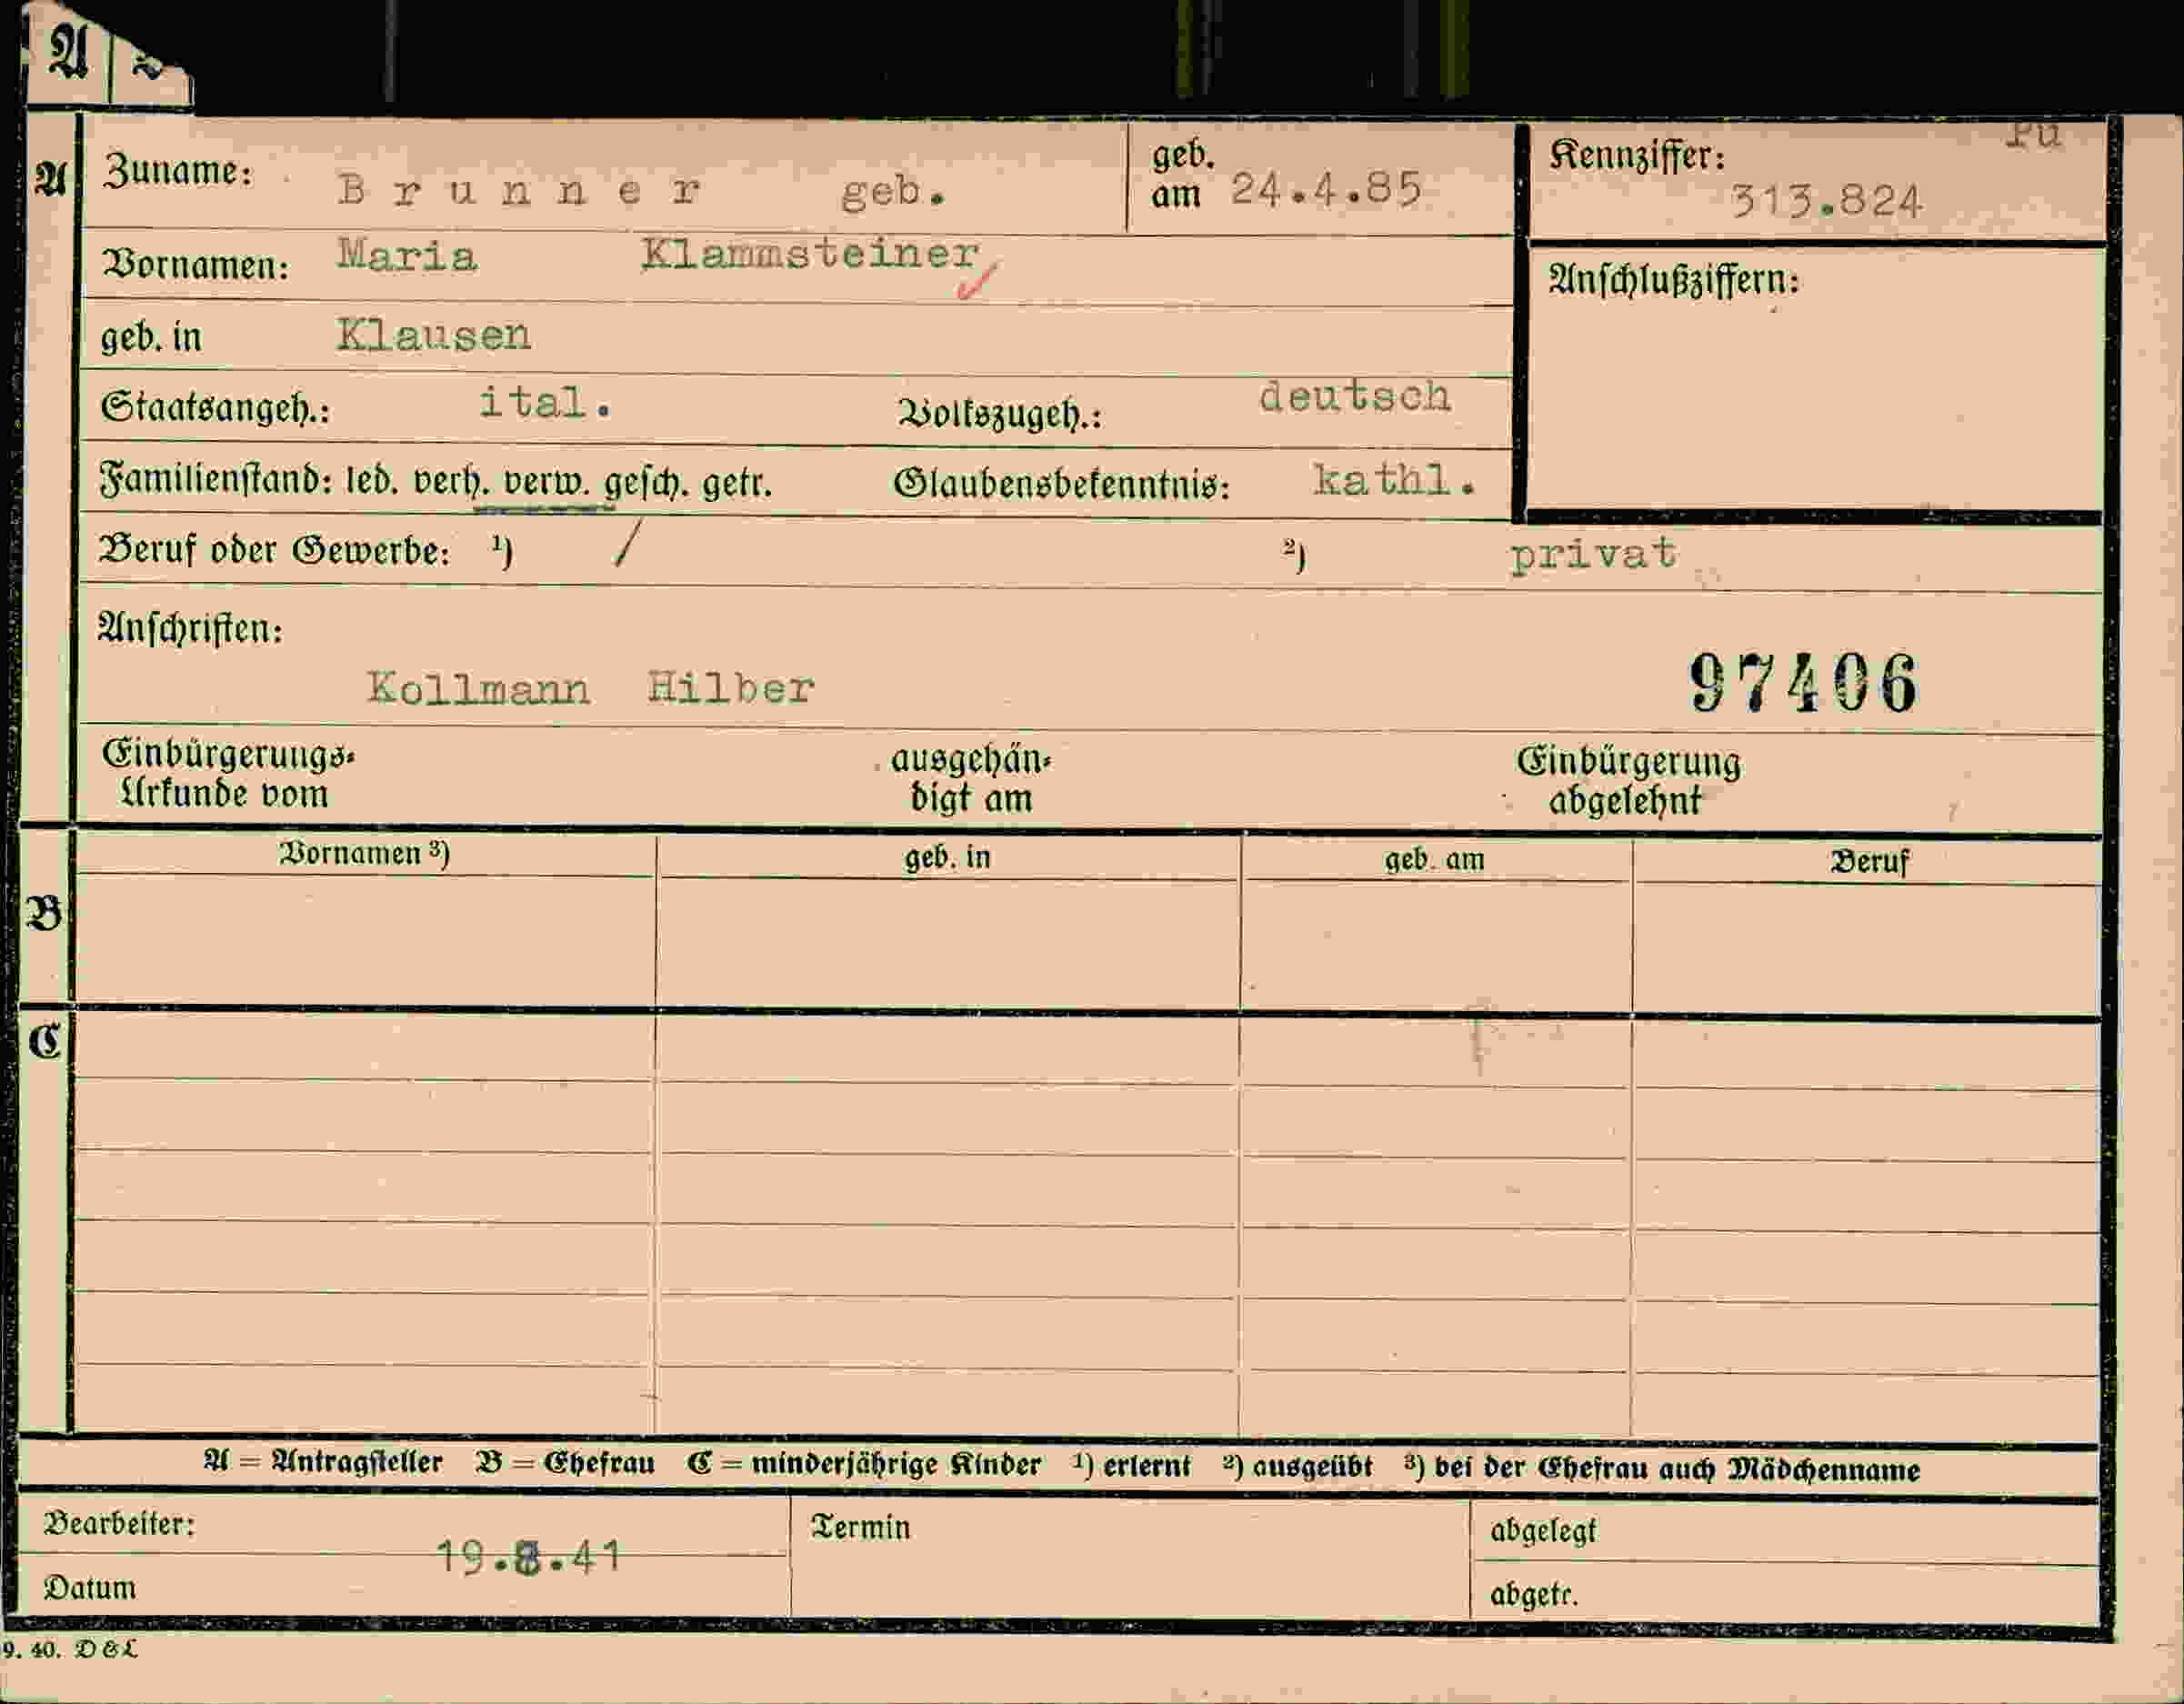 A
Pu
A Zuname: Brunner geb. geb. am 24.4.85 Kennziffer: 313.824
Vornamen: Maria Klammsteiner Anschlußziffern:
geb. in Klausen
Staatsangeh.: ital. Volkszugeh.: deutsch
Familienstand: led. verh. verw. gesch. getr. Glaubensbekenntnis: kathl.
Beruf oder Gewerbe: ¹) / ²) privat
Anschriften:
Kollmann Hilber 97406
Einbürgerungs- ausgehän- Einbürgerung
Urkunde vom digt am abgelehnt
Vornamen ³) geb. in geb. am Beruf
B
C
A = Antragsteller B = Ehefrau C = minderjährige Kinder ¹) erlernt ²) ausgeübt ³) bei der Ehefrau auch Mädchenname
Bearbeiter: Termin abgelegt
19.8.41
Datum abgetr.
9. 40. D & L